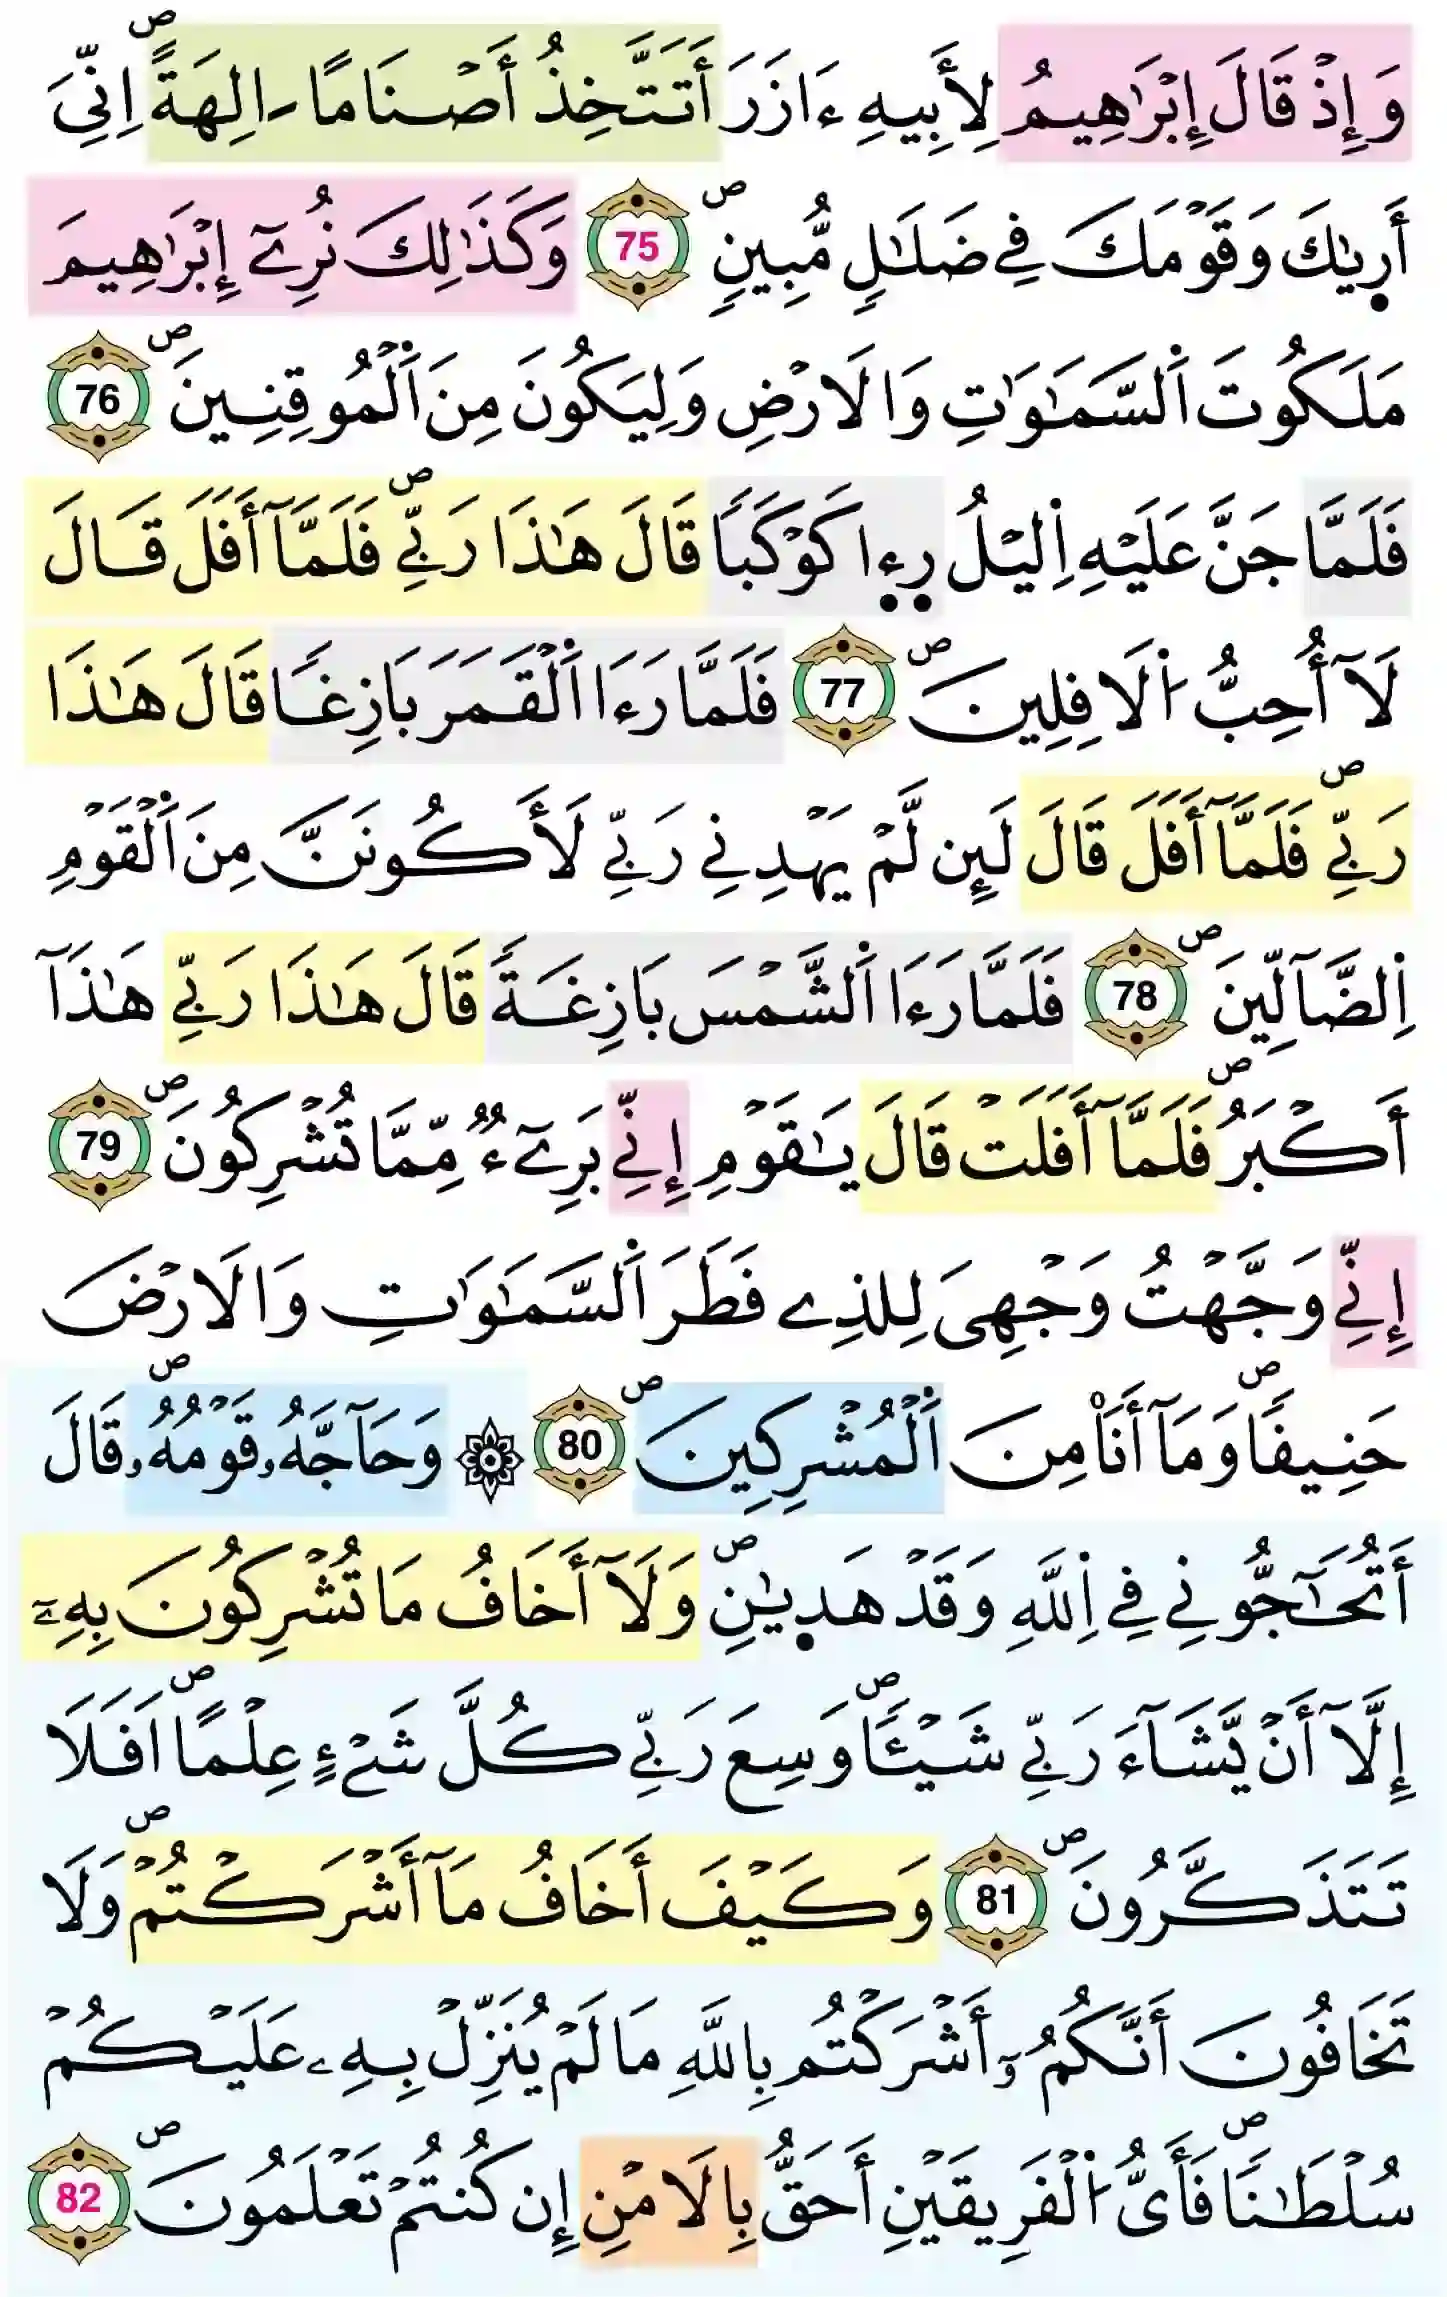 وَإِذْ قَالَ إِبْرَٰهِيمُ لِأَبِيهِ ءَازَرَ أَتَتَّخِذُ أَصْنَامًا ـالِهَةًۖ اِنِّيَ
أَر۪ىٰكَ وَقَوْمَكَ فِے ضَلَٰلٍ مُّبِينٍۖ 75 وَكَذَٰلِكَ نُرِےٓ إِبْرَٰهِيمَ
مَلَكُوتَ اَ۬لسَّمَٰوَٰتِ وَالَارْضِ وَلِيَكُونَ مِنَ اَ۬لْمُوقِنِينَۖ 76
فَلَمَّا جَنَّ عَلَيْهِ اِ۬ليْلُ ر۪ء۪ا كَوْكَباًۖ قَالَ هَٰذَا رَبِّےۖ فَلَمَّآ أَفَلَ قَالَ
لَآ أُحِبُّ اُ۬لَافِلِينَۖ 77 فَلَمَّا رَءَا اَ۬لْقَمَرَ بَازِغاً قَالَ هَٰذَا
رَبِّےۖ فَلَمَّآ أَفَلَ قَالَ لَئِن لَّمْ يَهْدِنِے رَبِّے لَأَكُونَنَّ مِنَ اَ۬لْقَوْمِ
اِ۬لضَّآلِّينَۖ 78 فَلَمَّا رَءَا اَ۬لشَّمْسَ بَازِغَةً قَالَ هَٰذَا رَبِّے هَٰذَآ
أَكْبَرُۖ فَلَمَّآ أَفَلَتْ قَالَ يَٰقَوْمِ إِنِّے بَرِےٓءٌ مِّمَّا تُشْرِكُونَۖ 79
إِنِّے وَجَّهْتُ وَجْهِيَ لِلذِے فَطَرَ اَ۬لسَّمَٰوَٰتِ وَالَارْضَ
حَنِيفاًۖ وَمَآ أَنَا۠ مِنَ اَ۬لْمُشْرِكِينَۖ 80 ۞ وَحَآجَّهُۥ قَوْمُهُۥۖ قَالَ
أَتُحَٰٓجُّونِے فِے اِ۬للَّهِ وَقَدْ هَد۪يٰنِۖ وَلَآ أَخَافُ مَا تُشْرِكُونَ بِهِۦٓ
إِلَّآ أَنْ يَّشَآءَ رَبِّے شَيْـٔاًۖ وَسِعَ رَبِّے كُلَّ شَےْءٍ عِلْماًۖ اَفَلَا
تَتَذَكَّرُونَۖ 81 وَكَيْفَ أَخَافُ مَآ أَشْرَكْتُمْۖ وَلَا
تَخَافُونَ أَنَّكُمُۥٓ أَشْرَكْتُم بِاللَّهِ مَا لَمْ يُنَزِّلْ بِهِۦ عَلَيْكُمْ
سُلْطَٰناًۖ فَأَيُّ اُ۬لْفَرِيقَيْنِ أَحَقُّ بِالَامْنِ إِن كُنتُمْ تَعْلَمُونَۖ 82